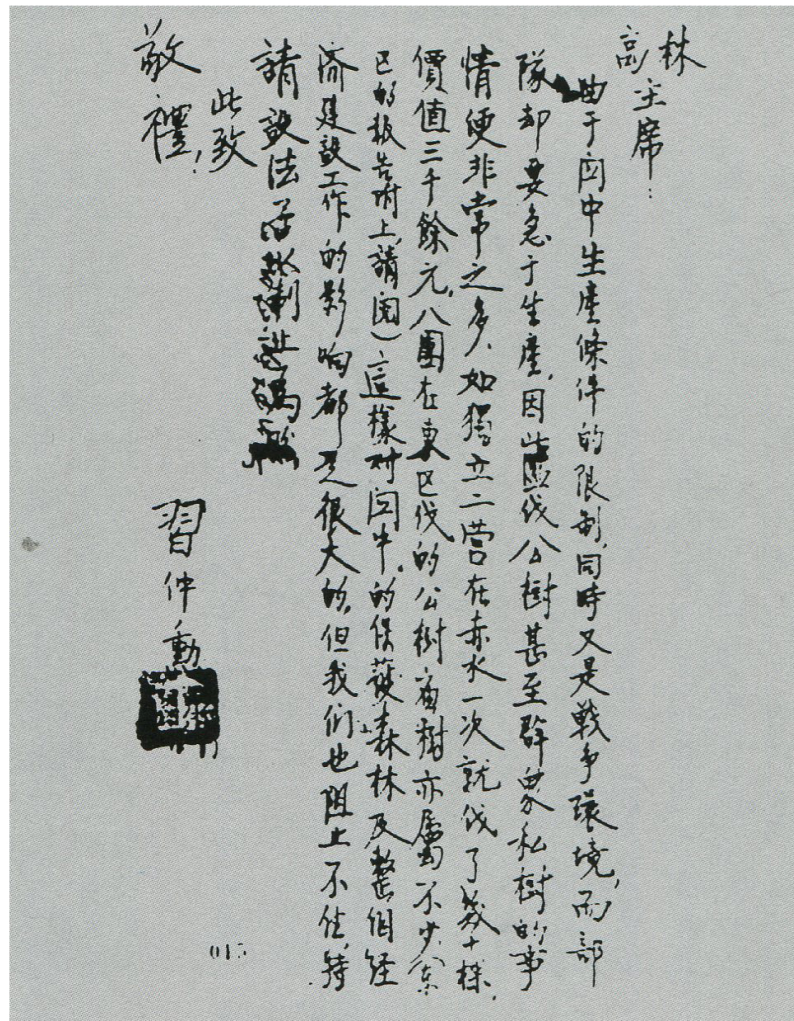 林
高主席：
由于関中生產條件的限制，同時又是戰爭環境，而部
隊却要急于生產，因此伐公樹甚至群眾私樹的事
情便非常之多，如獨立二营在赤水一次就伐了幾十株，
價值三千餘元，八團在東区伐的公樹庙樹亦屬不少（余
已的報告附上，請閱）這樣对関中，的保護森林及整個經
济建設工作的影响都是很大的，但我们也阻止不住，特
請設法
此致
敬禮！
習仲勳
015